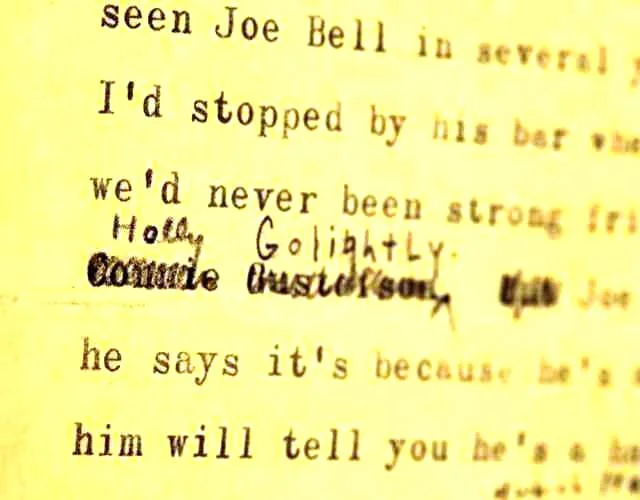 seen Joe Bell in several
I'd stopped by his bar
we'd never been strong
Holly Golightly.
Connie Gustafson, Joe
he says it's because he's
him will tell you he's a